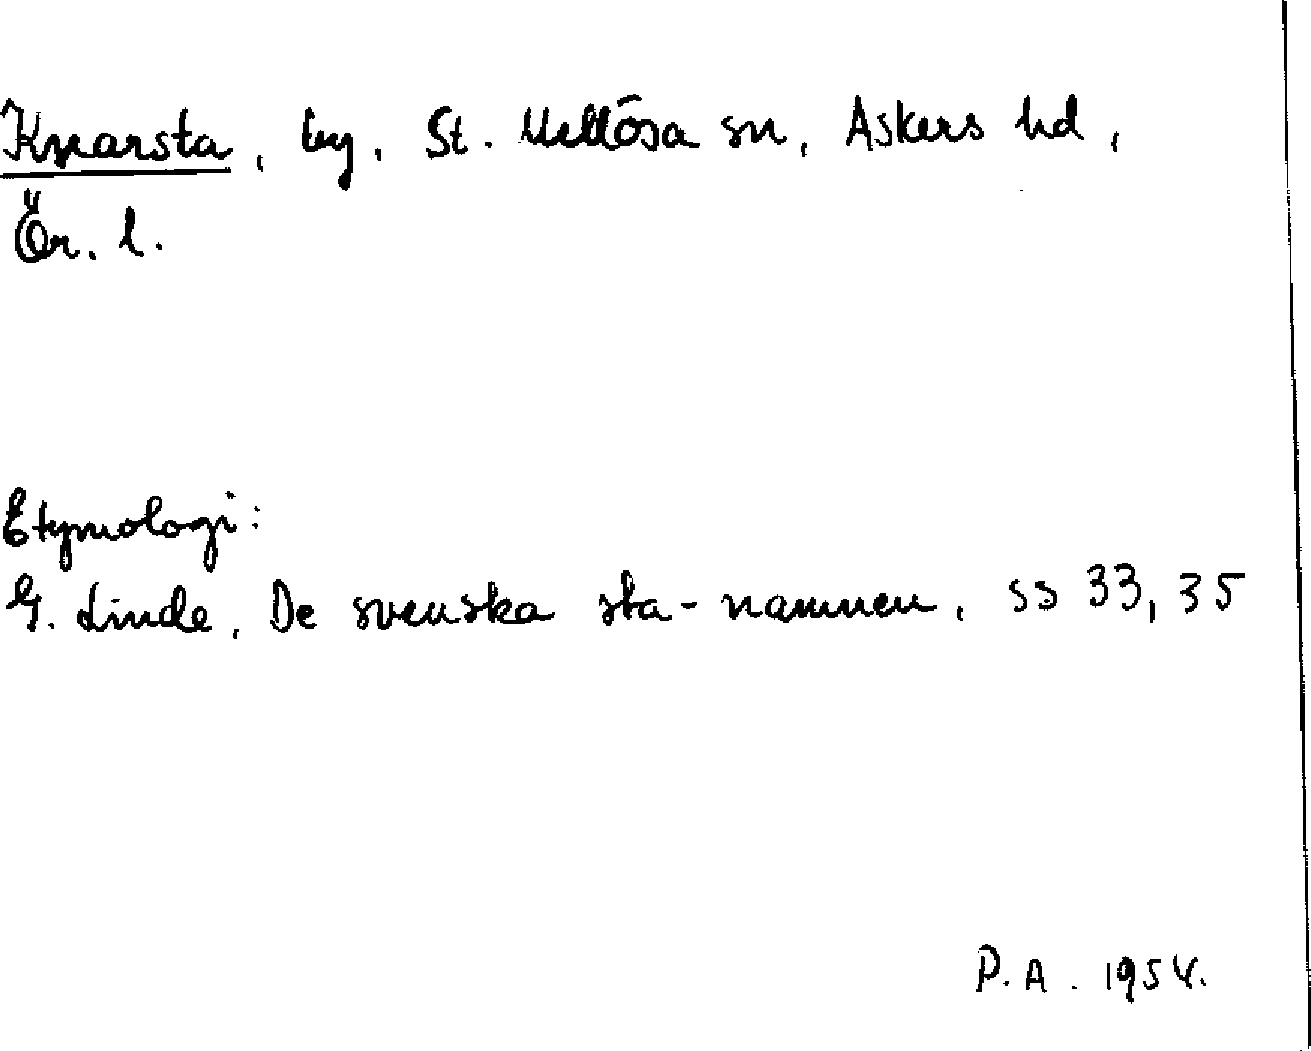 Knarsta, by, St. Mellösa sn, Askers hd,
Ör. l.
Etymologi:
G. Linde, De svenska sta-namnen, ss 33, 35
P.A. 1954.